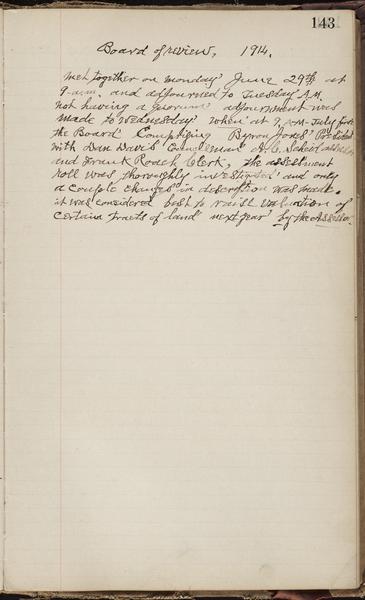 143
Board of review, 1914.
Met together on Monday June 29th at
9 a.m. and adjourned to Tuesday A.M.
not having a quorum adjournment was
made to Wednesday when at 9, A.M. July first
the Board Comprising Byron Jones President
with Dan Davis Councleman A. C. Scheid assessor
and Frank Rodek Clerk, the assessment
roll was thoroughly investigated and only
a Couple changes in description was made.
it was considered best to raise valuation of
certain tracts of land next year by the Assessor.